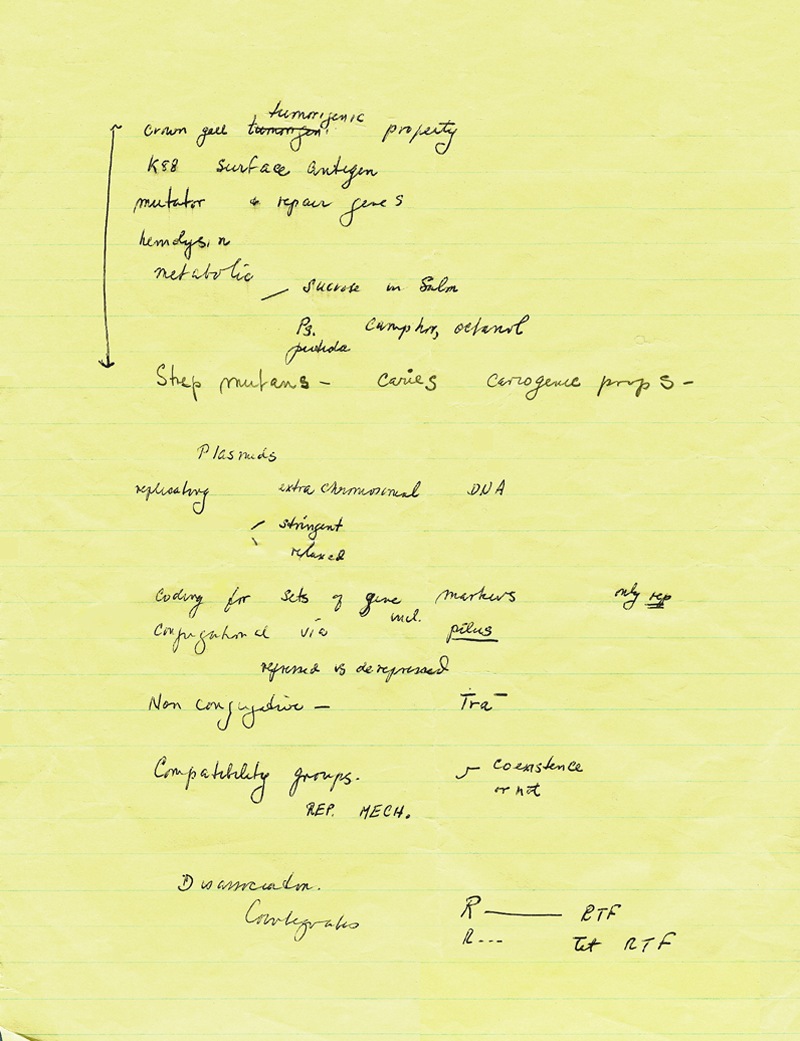 tumorigenic
crown gall tumorgen. property
K88 surface antigen
mutator + repair genes
hemolysin
metabolic
sucrose in Salm
Ps. camphor, octanol
putida
Strep mutans - caries cariogenic props -
Plasmids
replicating extra chromosomal DNA
stringent
relaxed
Coding for sets of gene markers only rep
incl.
Conjugational via pilus
repressed vs derepressed
Non conjugative - Tra-
Compatibility groups. coexistence
or not
REP. MECH.
Disassociation.
Cointegrates
R —— RTF
R --- tet RTF